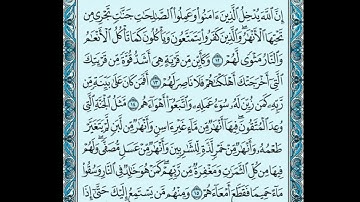 إِنَّ ٱللَّهَ يُدْخِلُ ٱلَّذِينَ ءَامَنُوا۟ وَعَمِلُوا۟ ٱلصَّٰلِحَٰتِ جَنَّٰتٍ تَجْرِى مِن
تَحْتِهَا ٱلْأَنْهَٰرُ وَٱلَّذِينَ كَفَرُوا۟ يَتَمَتَّعُونَ وَيَأْكُلُونَ كَمَا تَأْكُلُ ٱلْأَنْعَٰمُ
وَٱلنَّارُ مَثْوًى لَّهُمْ ١٢ وَكَأَيِّن مِّن قَرْيَةٍ هِىَ أَشَدُّ قُوَّةً مِّن قَرْيَتِكَ
ٱلَّتِىٓ أَخْرَجَتْكَ أَهْلَكْنَٰهُمْ فَلَا نَاصِرَ لَهُمْ ١٣ أَفَمَن كَانَ عَلَىٰ بَيِّنَةٍ مِّن
رَّبِّهِۦ كَمَن زُيِّنَ لَهُۥ سُوٓءُ عَمَلِهِۦ وَٱتَّبَعُوٓا۟ أَهْوَآءَهُم ١٤ مَّثَلُ ٱلْجَنَّةِ ٱلَّتِى
وُعِدَ ٱلْمُتَّقُونَ فِيهَآ أَنْهَٰرٌ مِّن مَّآءٍ غَيْرِ ءَاسِنٍ وَأَنْهَٰرٌ مِّن لَّبَنٍ لَّمْ يَتَغَيَّرْ
طَعْمُهُۥ وَأَنْهَٰرٌ مِّنْ خَمْرٍ لَّذَّةٍ لِّلشَّٰرِبِينَ وَأَنْهَٰرٌ مِّنْ عَسَلٍ مُّصَفًّى وَلَهُمْ
فِيهَا مِن كُلِّ ٱلثَّمَرَٰتِ وَمَغْفِرَةٌ مِّن رَّبِّهِمْ كَمَنْ هُوَ خَٰلِدٌ فِى ٱلنَّارِ وَسُقُوا۟
مَآءً حَمِيمًا فَقَطَّعَ أَمْعَآءَهُمْ ١٥ وَمِنْهُم مَّن يَسْتَمِعُ إِلَيْكَ حَتَّىٰٓ إِذَا